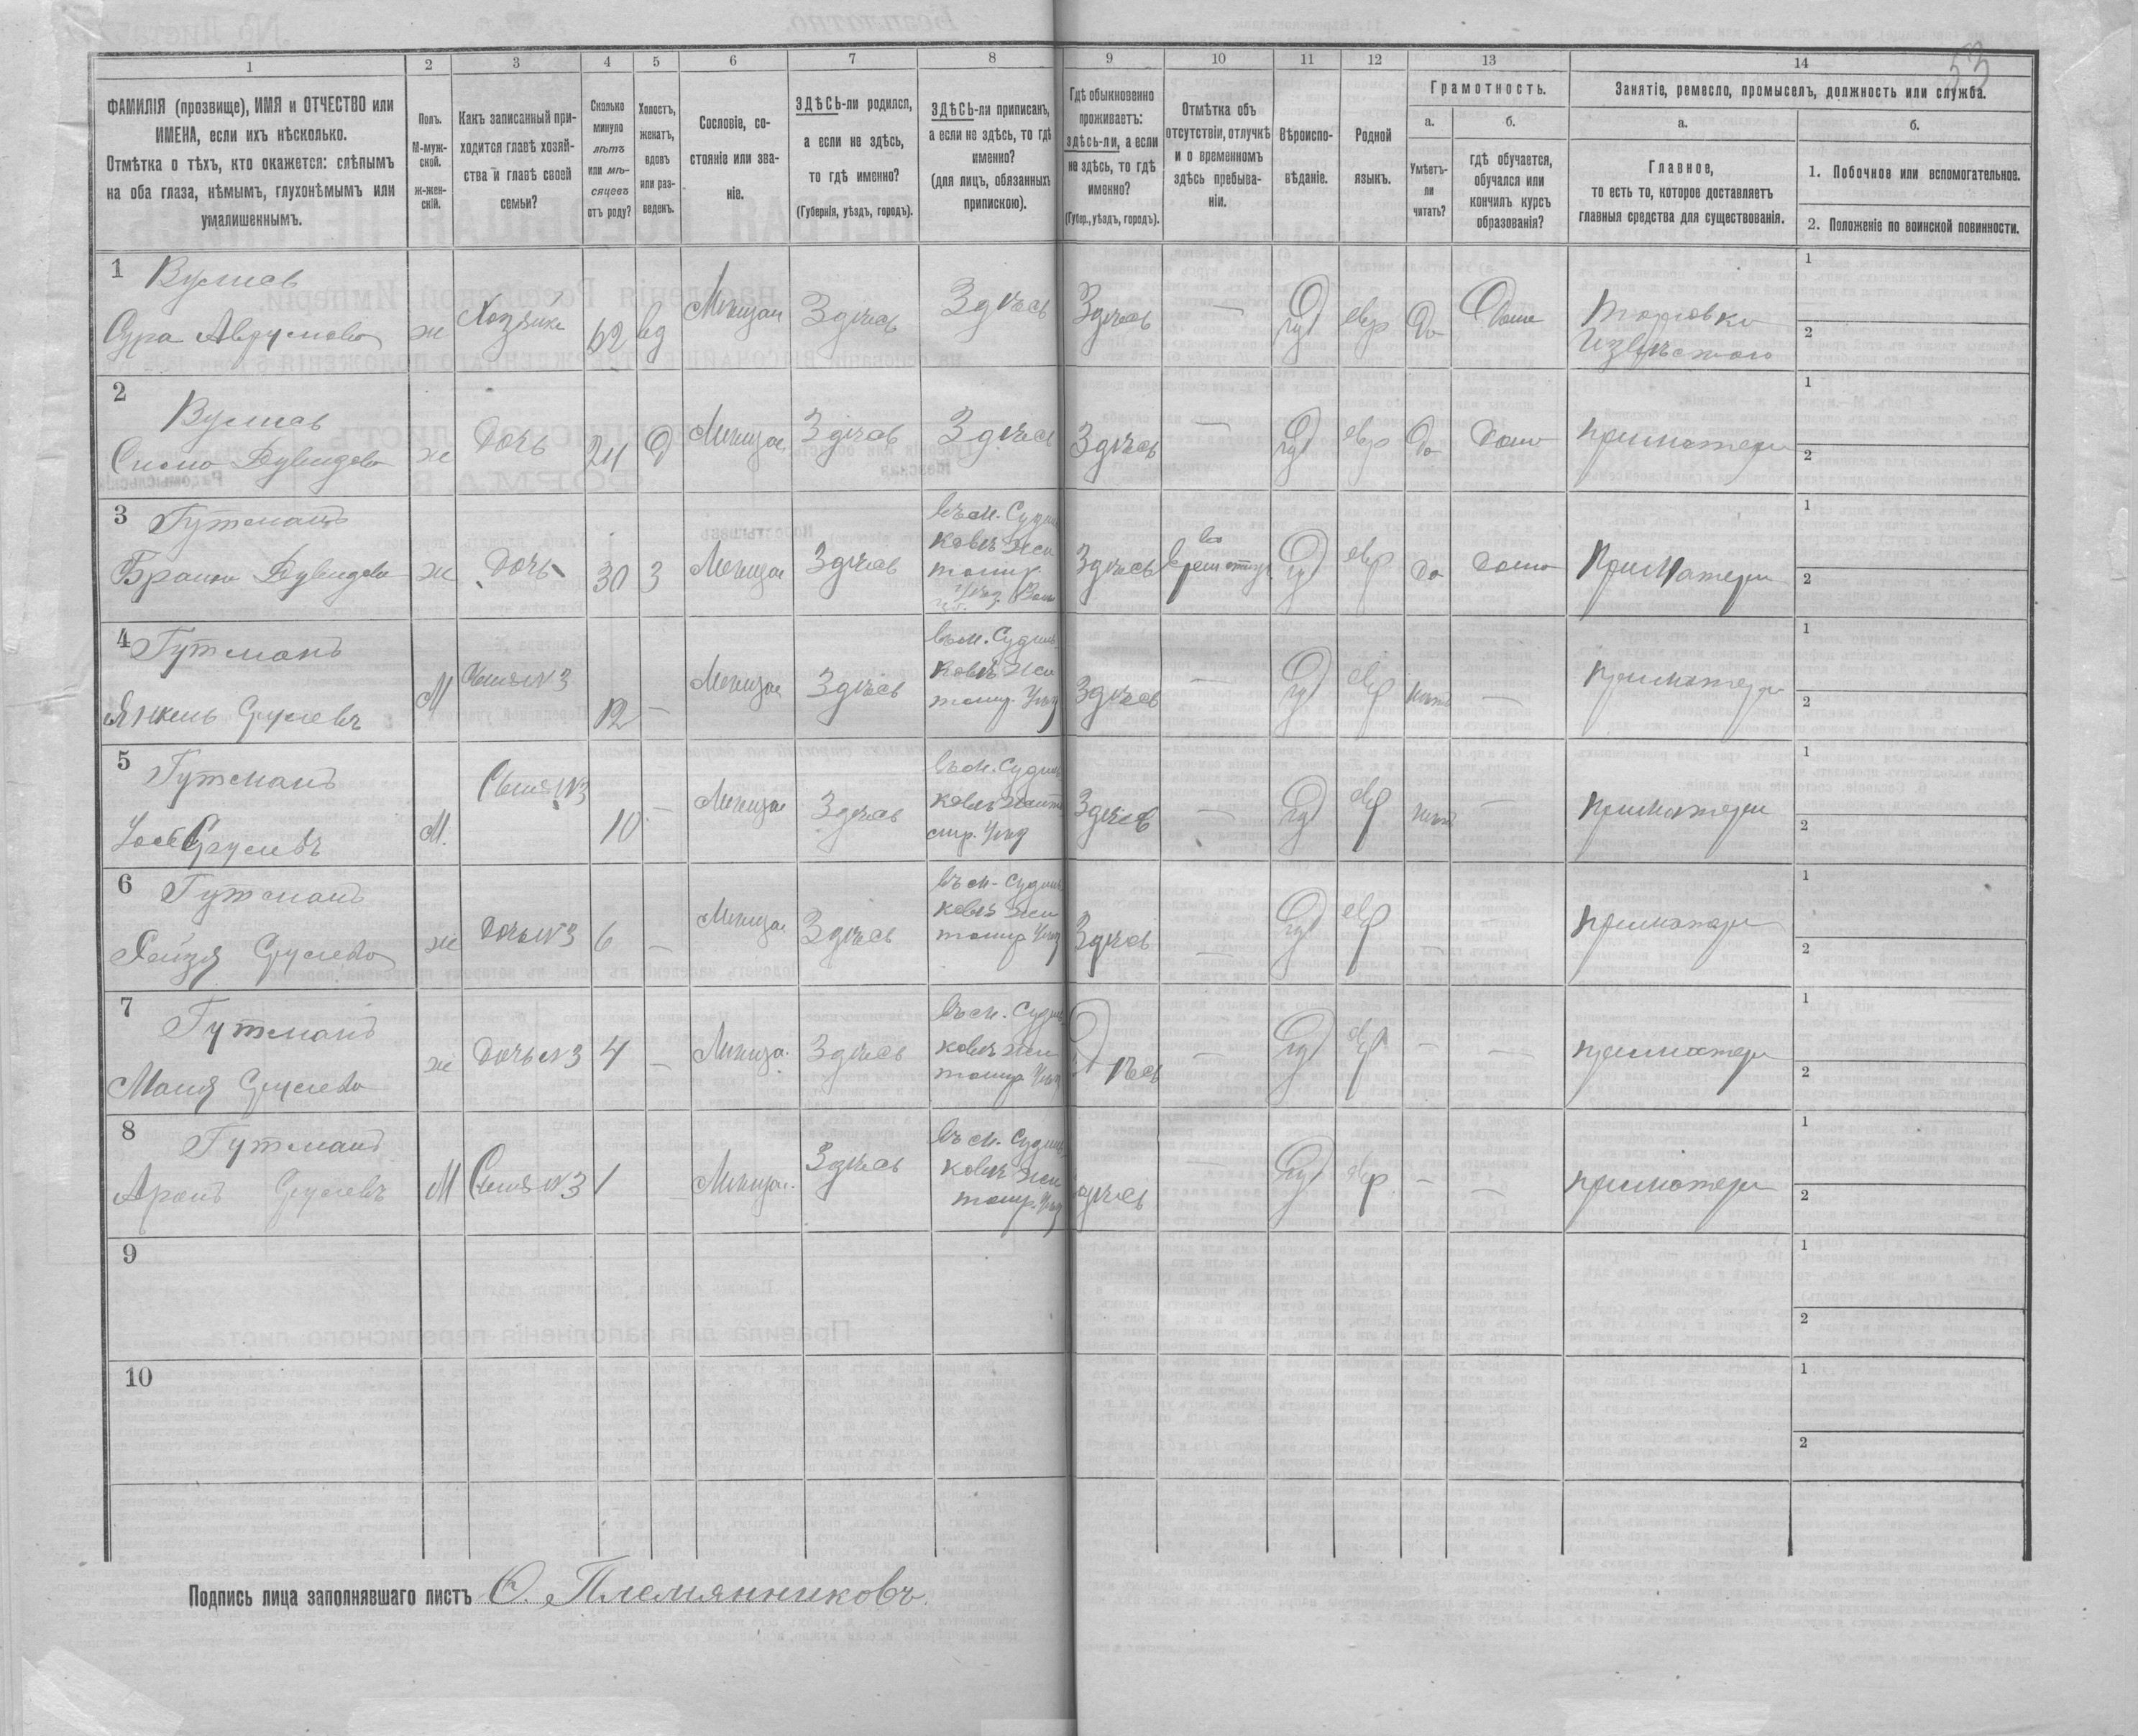 53
1
2
3
4
5
6
7
8
9
10
11
12
13
14
ФАМИЛІЯ (прозвище), ИМЯ и ОТЧЕСТВО или
ИМЕНА, если ихъ нѣсколько.
Отмѣтка о тѣхъ, кто окажется: слѣпымъ
на оба глаза, нѣмымъ, глухонѣмымъ или
умалишеннымъ.
Полъ.
М-муж-
ской.
ж-жен-
скій.
Какъ записанный при-
ходится главѣ хозяй-
ства и главѣ своей
семьи?
Сколько
минуло
лѣтъ
или мѣ-
сяцевъ
отъ роду?
Холостъ,
женатъ,
вдовъ
или раз-
веденъ.
Сословіе, со-
стояніе или зва-
ніе.
ЗДѢСЬ-ли родился,
а если не здѣсь,
то гдѣ именно?
(Губернія, уѣздъ, городъ).
ЗДѢСЬ-ли приписанъ,
а если не здѣсь, то гдѣ
именно?
(для лицъ, обязанныхъ
припискою).
Гдѣ обыкновенно
проживаетъ:
здѣсь-ли, а если
не здѣсь, то гдѣ
именно?
(Губер., уѣздъ, городъ).
Отмѣтка объ
отсутствіи, отлучкѣ
и о временномъ
здѣсь пребыва-
ніи.
Вѣроиспо-
вѣданіе.
Родной
языкъ.
Грамотность.
а.
Умѣетъ-
ли
читать?
б.
гдѣ обучается,
обучался или
кончилъ курсъ
образованія?
Занятіе, ремесло, промыселъ, должность или служба.
а.
Главное,
то есть то, которое доставляетъ
главныя средства для существованія.
б.
1. Побочное или вспомогательное.
2. Положеніе по воинской повинности.
1
Сура ж Хозяйка 62 вд Мѣщан Здѣсь Здѣсь Здѣсь — Іуд евр да Дома Торговка
1
2
2
ж Дочь 24 Д Мѣщан Здѣсь Здѣсь Здѣсь — Іуд евр да Дома при матери
1
2
3 Гутманъ
ж Дочь 30 З Мѣщан Здѣсь въ м. Судил
ковѣ Жи
томир. Здѣсь Іуд евр да дома при матери
1
2
4 Гутманъ
Янкель Сруlевъ М Сынъ N3 12 — Мѣщан Здѣсь въ м. Судил
ковѣ Жи
томир. Уѣзд Здѣсь — Іуд евр нѣтъ — при матери
1
2
5 Гутманъ
М. Сынъ N3 10 — Мѣщан Здѣсь въ м. Судил
ковѣ Жито
мир. Уѣзд Здѣсь — Іуд евр нѣтъ — при матери
1
2
6 Гутманъ
ж Дочь N3 6 — Мѣщан Здѣсь въ м. Судил
ковѣ Жи
томир Уѣзд Здѣсь — Іуд евр — — при матери
1
2
7 Гутманъ
Маня Срулева ж Дочь N3 4 — Мѣщан. Здѣсь въ м. Судил
ковѣ Жи
томир Уѣзд Здѣсь — Іуд евр — — при матери
1
2
8 Гутманъ
Аронъ Срулевъ М Сынъ N3 1 Мѣщан. Здѣсь въ м. Судил
ковѣ Жи
томир. Уѣзд Здѣсь — Іуд евр — — при матери
1
2
9
1
2
10
1
2
Подпись лица заполнявшаго листъ О. Племянниковъ.